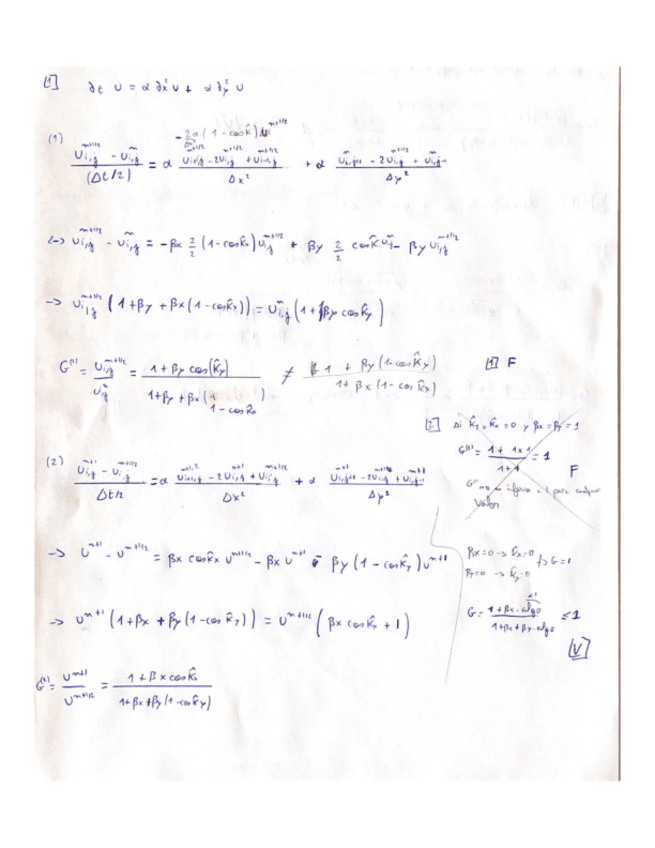 [1] ∂t u = α ∂x² u + α ∂y² u
-2α(1-cos k̂)u^{n+1/2}
(1) (u_{i,j}^{n+1/2} - u_{i,j}^n)/(Δt/2) = α (u_{i+1,j}^{n+1/2} - 2u_{i,j}^{n+1/2} + u_{i-1,j}^{n+1/2})/Δx² + α (u_{i,j+1}^n - 2u_{i,j}^{n+1/2} + u_{i,j-1}^n)/Δy²
↳ u_{i,j}^{n+1/2} - u_{i,j}^n = -βx 2/2 (1-cos k̂x) u_{i,j}^{n+1/2} + βy 2/2 cos k̂ u_{i,j}^n - βy u_{i,j}^{n+1/2}
→ u_{i,j}^{n+1/2} (1+βy + βx(1-cos k̂x)) = u_{i,j}^n (1+βy cos k̂y)
G^{(1)} = u_{i,j}^{n+1/2}/u_{i,j}^n = (1+βy cos(k̂y))/(1+βy+βx(1-cos k̂x)) ≠ (1 + βy(1-cos k̂y))/(1+βx(1-cos k̂x)) [1] F
[2] si k̂y = k̂x = 0 y βx = βy = 1
G^{(1)} = (1+1x1)/(1+1) = 1 F
G^{(1)} no es inferior a 1 para cualquier
valor
(2) (u_{i,j}^{n+1} - u_{i,j}^{n+1/2})/(Δt/2) = α (u_{i+1,j}^{n+1/2} - 2u_{i,j}^{n+1} + u_{i-1,j}^{n+1/2})/Δx² + α (u_{i,j+1}^{n+1} - 2u_{i,j}^{n+1} + u_{i,j-1}^{n+1})/Δy²
→ u^{n+1} - u^{n+1/2} = βx cos k̂x u^{n+1/2} - βx u^{n+1} - βy(1-cos k̂y) u^{n+1}
βx=0 → k̂x=0
βy=0 → k̂y=0 } → G=1
→ u^{n+1} (1+βx + βy(1-cos k̂y)) = u^{n+1/2} (βx cos k̂x + 1)
G = (1+βx·algo)/(1+βx+βy·algo) ≤ 1
[V]
G^{(2)} = u^{n+1}/u^{n+1/2} = (1+βx cos k̂x)/(1+βx+βy(1-cos k̂y))